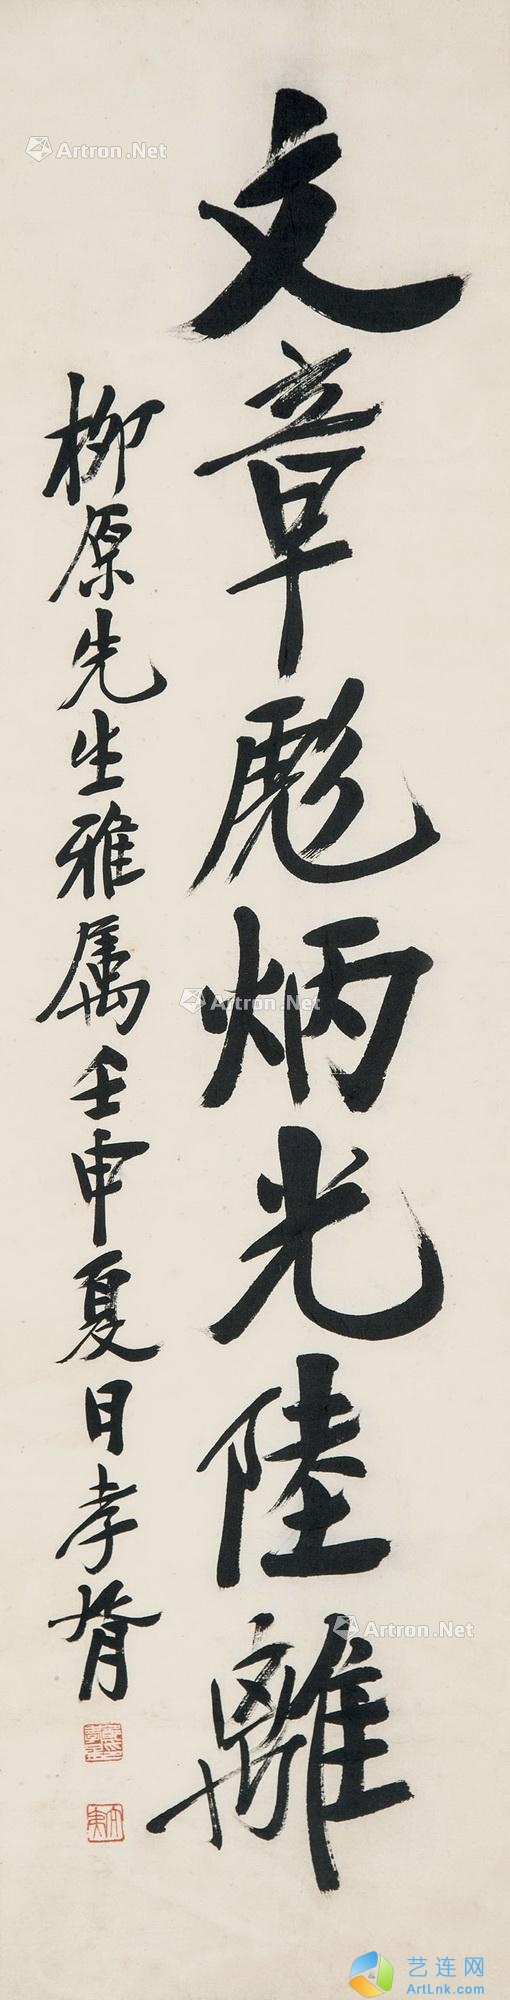 文章彪炳光陸離
柳原先生雅属壬申夏日孝胥
Artron.Net
Artron.Net
Artron.Net
艺连网
ArtLnk.com